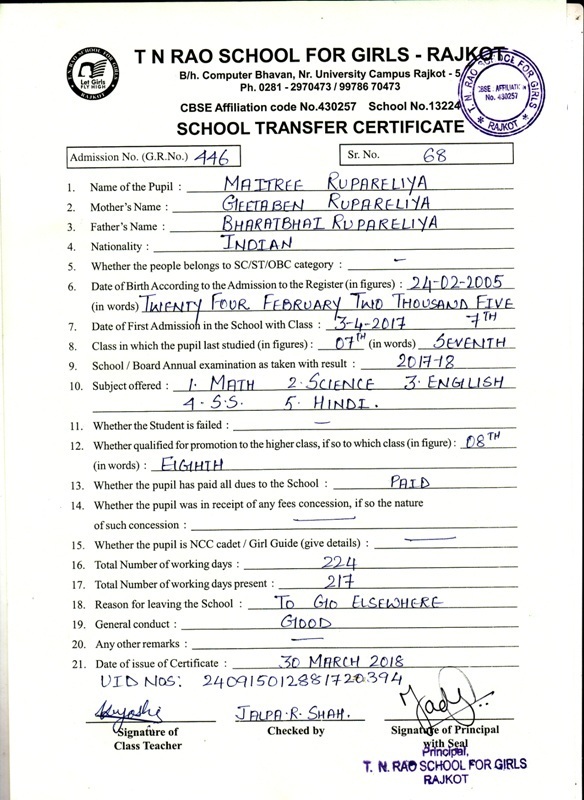 T N RAO SCHOOL FOR GIRLS - RAJKOT
B/h. Computer Bhavan, Nr. University Campus Rajkot - 5
Ph. 0281 - 2970473 / 99786 70473
CBSE Affiliation code No.430257 School No.13224
SCHOOL TRANSFER CERTIFICATE
T. N. RAO SCHOOL FOR GIRLS
CBSE AFFILIATION
No. 430257
RAJKOT
T N RAO SCHOOL FOR GIRLS
Let Girls
FLY HIGH
RAJKOT
Admission No. (G.R.No.) 446 Sr. No. 68
1. Name of the Pupil : MAITREE RUPARELIYA
2. Mother's Name : GEETABEN RUPARELIYA
3. Father's Name : BHARATBHAI RUPARELIYA
4. Nationality : INDIAN
5. Whether the people belongs to SC/ST/OBC category : —
6. Date of Birth According to the Admission to the Register (in figures) : 24-02-2005
(in words) TWENTY FOUR FEBRUARY TWO THOUSAND FIVE
7. Date of First Admission in the School with Class : 3-4-2017 7TH
8. Class in which the pupil last studied (in figures) : 07TH (in words) SEVENTH
9. School / Board Annual examination as taken with result : 2017-18
10. Subject offered : 1. MATH 2. SCIENCE 3. ENGLISH
4. S.S. 5. HINDI.
11. Whether the Student is failed : —
12. Whether qualified for promotion to the higher class, if so to which class (in figure) : 08TH
(in words) : EIGHTH
13. Whether the pupil has paid all dues to the School : PAID
14. Whether the pupil was in receipt of any fees concession, if so the nature
of such concession : —
15. Whether the pupil is NCC cadet / Girl Guide (give details) : —
16. Total Number of working days : 224
17. Total Number of working days present : 217
18. Reason for leaving the School : TO GO ELSEWHERE
19. General conduct : GOOD
20. Any other remarks : —
21. Date of issue of Certificate : 30 MARCH 2018
UID NOS: 240915012881720394
JALPA.R.SHAH.
Signature of Checked by Signature of Principal
Class Teacher with Seal
Principal,
T. N. RAO SCHOOL FOR GIRLS
RAJKOT